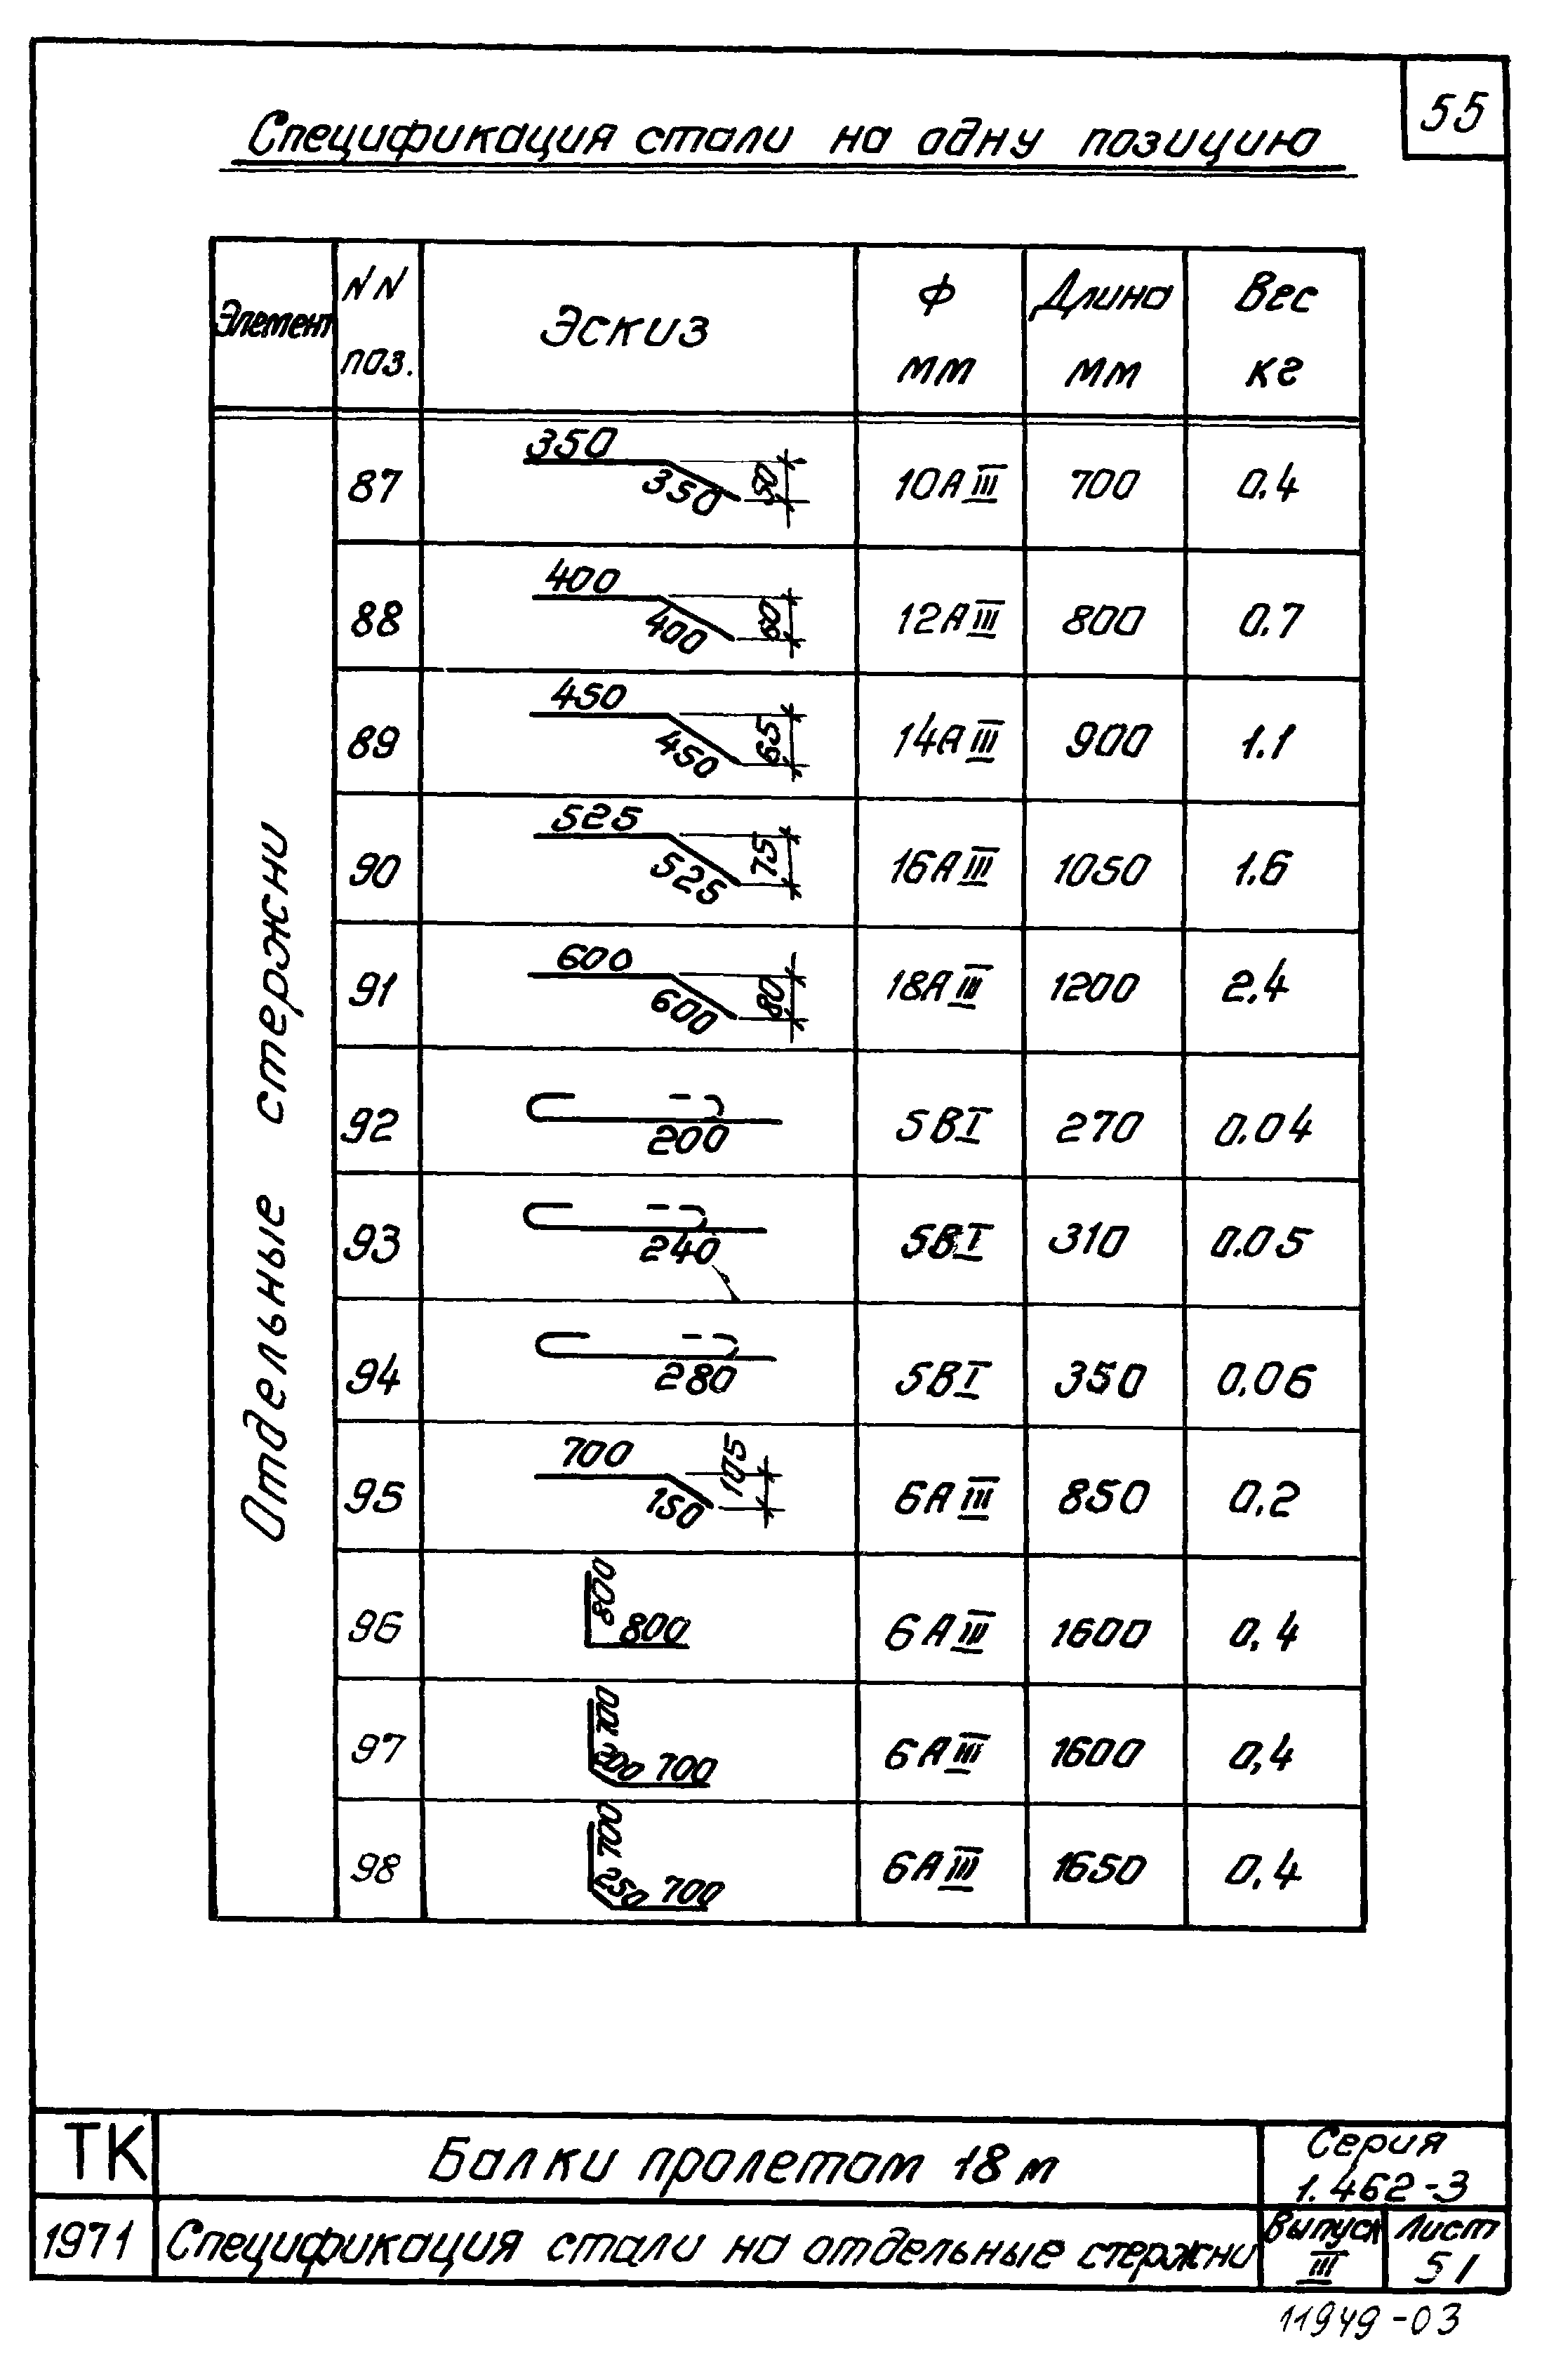 55
Спецификация стали на одну позицию
Элемент
NN поз.
Эскиз
Ф мм
Длина мм
Вес кг
Отдельные стержни
87 350 350 50 10АIII 700 0.4
88 400 400 60 12АIII 800 0.7
89 450 450 65 14АIII 900 1.1
90 525 525 75 16АIII 1050 1.6
91 600 600 80 18АIII 1200 2.4
92 200 5ВI 270 0.04
93 240 5ВI 310 0.05
94 280 5ВI 350 0,06
95 700 150 105 6АIII 850 0,2
96 800 800 6АIII 1600 0,4
97 700 200 700 6АIII 1600 0,4
98 700 250 700 6АIII 1650 0,4
ТК
Балки пролетом 18 м
Серия
1.462-3
1971
Спецификация стали на отдельные стержни
Выпуск
III
Лист
51
11949-03